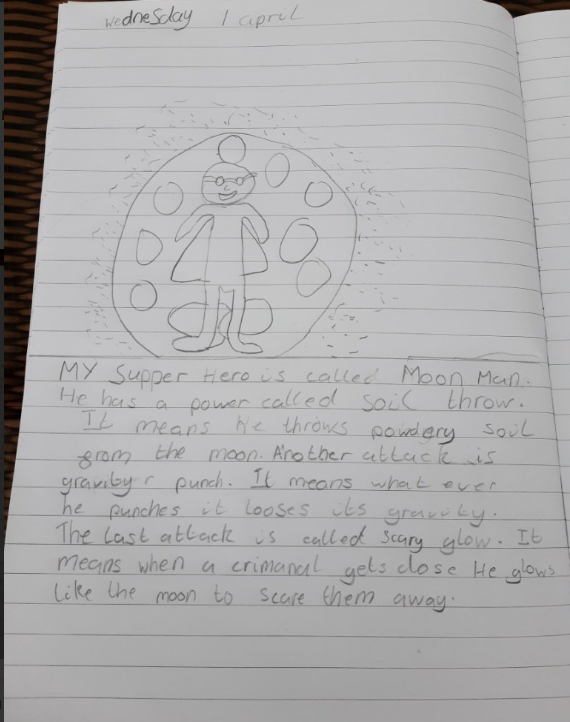 wednesday 1 april
MY Supper Hero is called Moon Man.
He has a power called soil throw.
It means He throws powdery soil
from the moon. Another attack is
gravity r punch. It means what ever
he punches it looses its gravity.
The last attack is called scary glow. It
means when a crimanal gets close He glows
like the moon to scare them away.